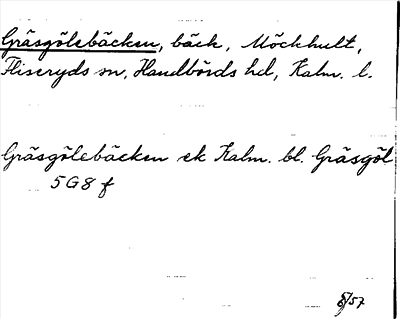 Gräsgölebäcken, bäck, Möckhult,
Fliseryds sn, Handbörds hd, Kalm. l.
Gräsgölebäcken ek Kalm. bl. Gräsgöl
5G8 f
8/57